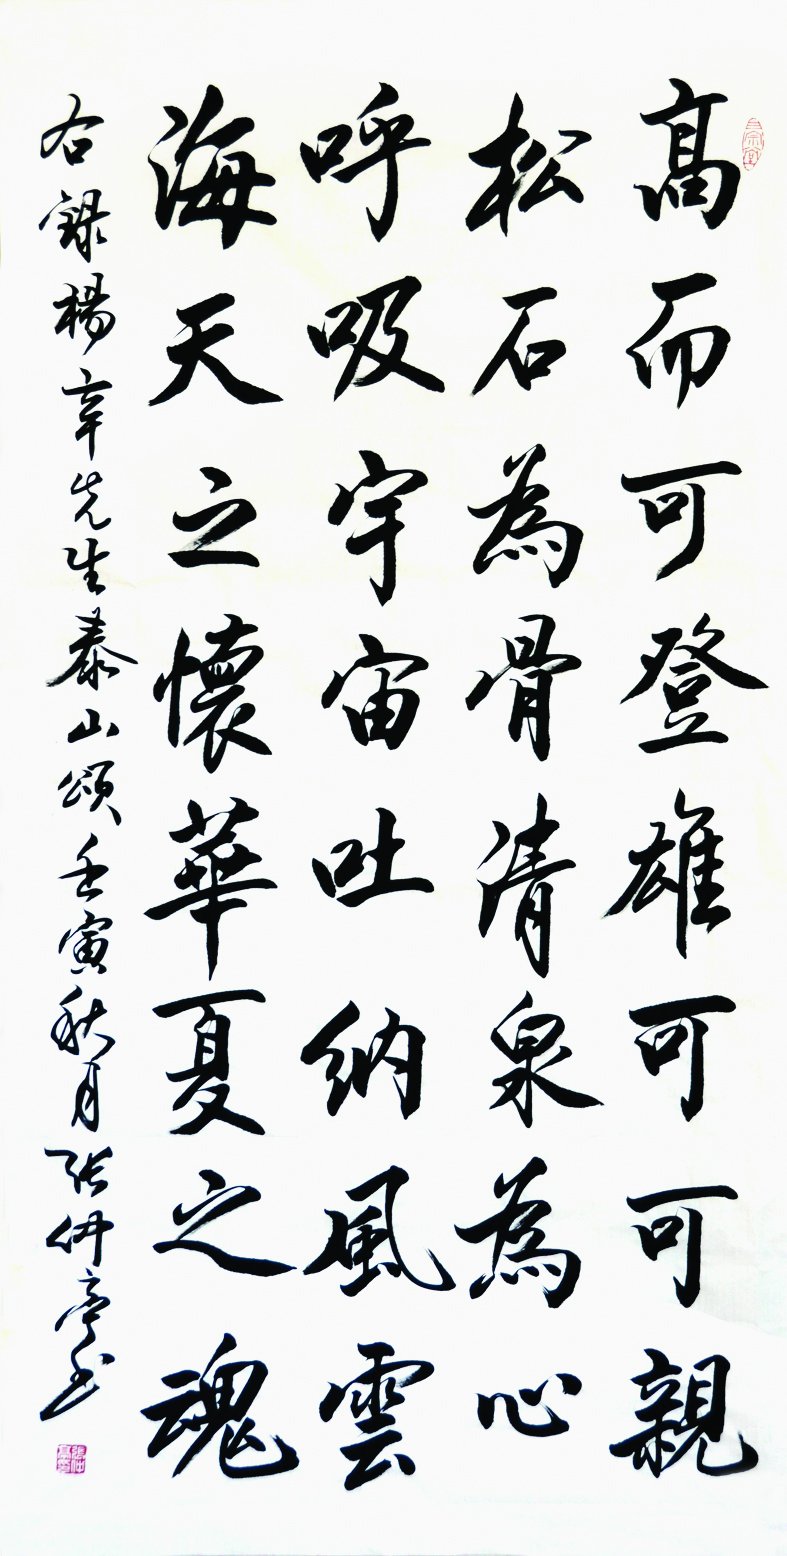 髙而可登雄可可親
松石為骨清泉為心
呼吸宇宙吐納風雲
海天之懷華夏之魂
右録楊辛先生泰山頌壬寅秋月张仲亭书